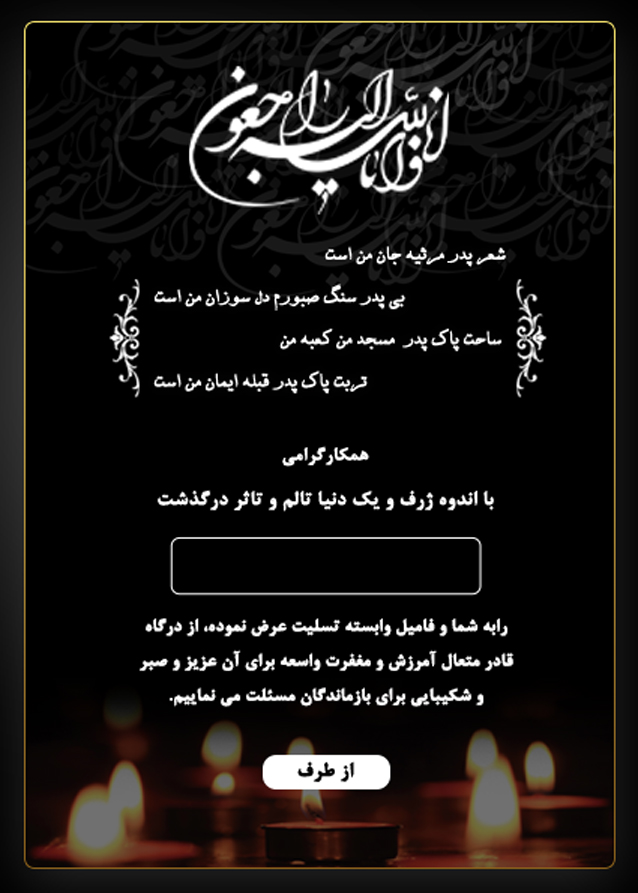 انا لله و انا الیه راجعون
شعر پدر مرثیه جان من است
بی پدر سنگ صبورم دل سوزان من است
ساحت پاک پدر مسجد من کعبه من
تربت پاک پدر قبله ایمان من است
همکارگرامی
با اندوه ژرف و یک دنیا تالم و تاثر درگذشت
رابه شما و فامیل وابسته تسلیت عرض نموده، از درگاه
قادر متعال آمرزش و مغفرت واسعه برای آن عزیز و صبر
و شکیبایی برای بازماندگان مسئلت می نماییم.
از طرف